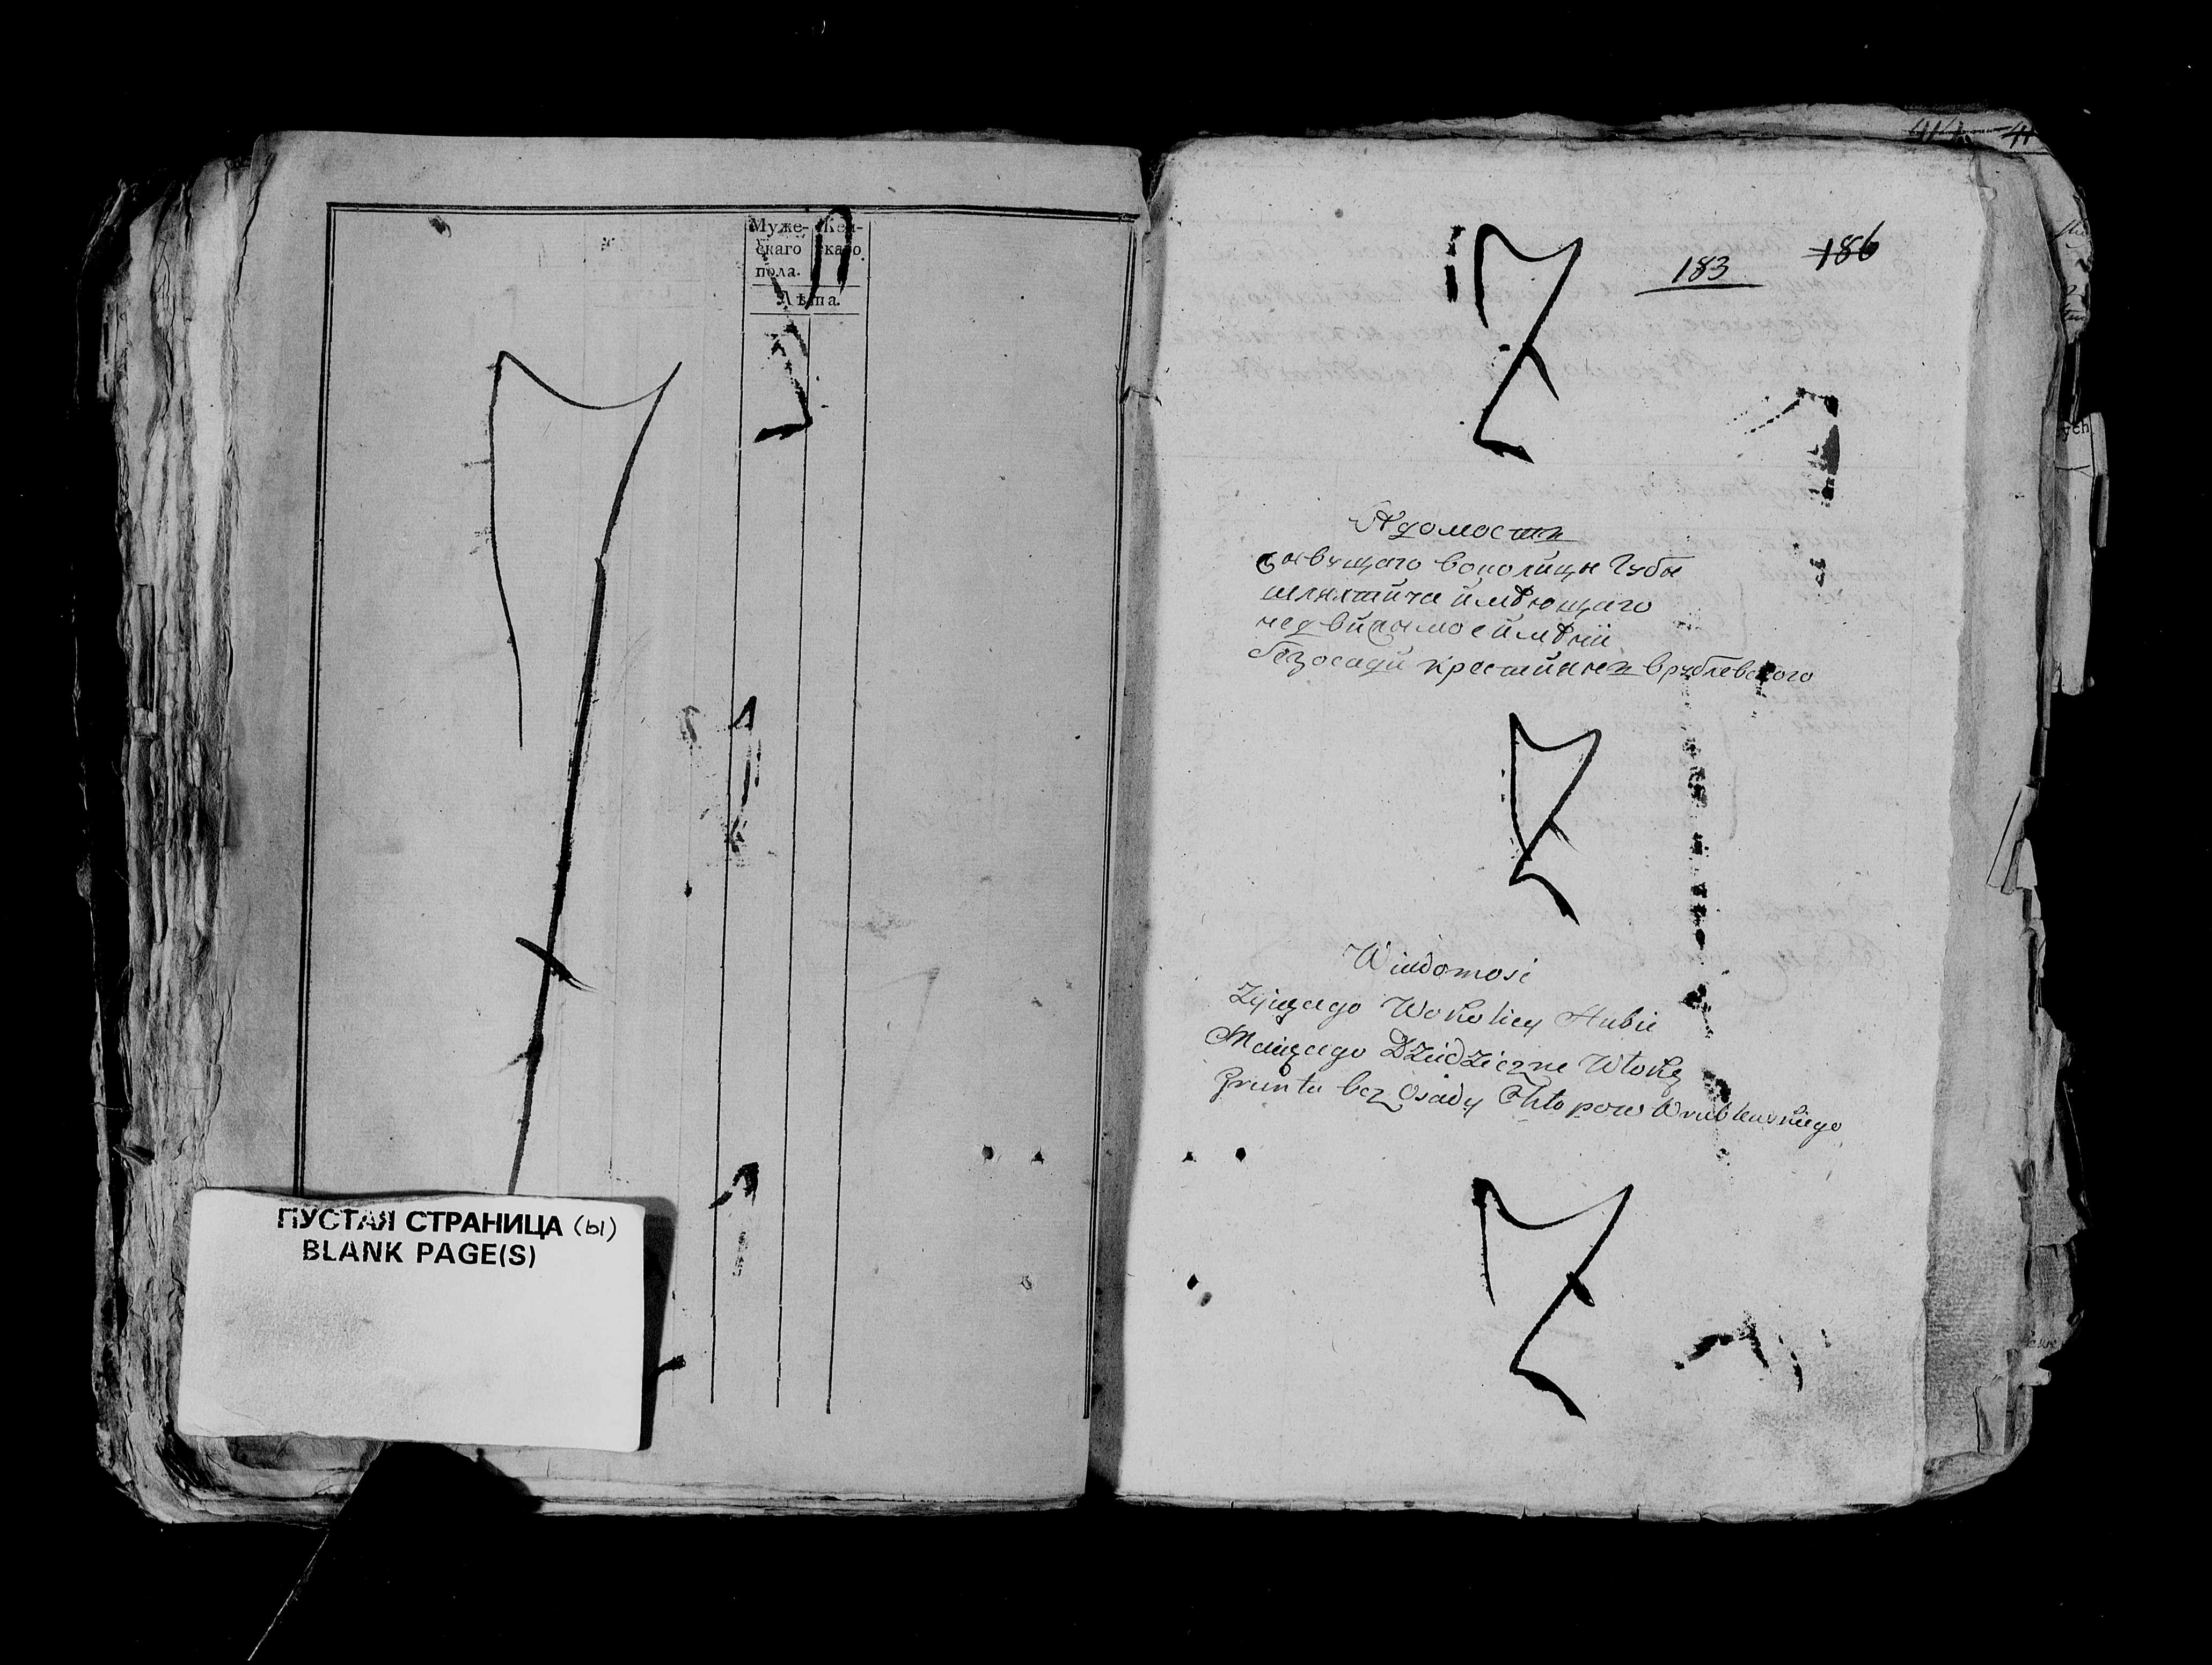 Муже-
скаго
пола.
Жен-
скаго
Лѣта.
ПУСТАЯ СТРАНИЦА (Ы)
BLANK PAGE(S)
183
186
Вѣдомость
вополицы Губы
шляхтича имѣющаго
недвижимое имѣніи
безосади крестиянъ врублевского
Wiadomosć
Zyiącego Wokolicy Hubie
Maiącego Dziedziczne Włokę
Gruntu bez Osady Chłopow Wrublewskiego